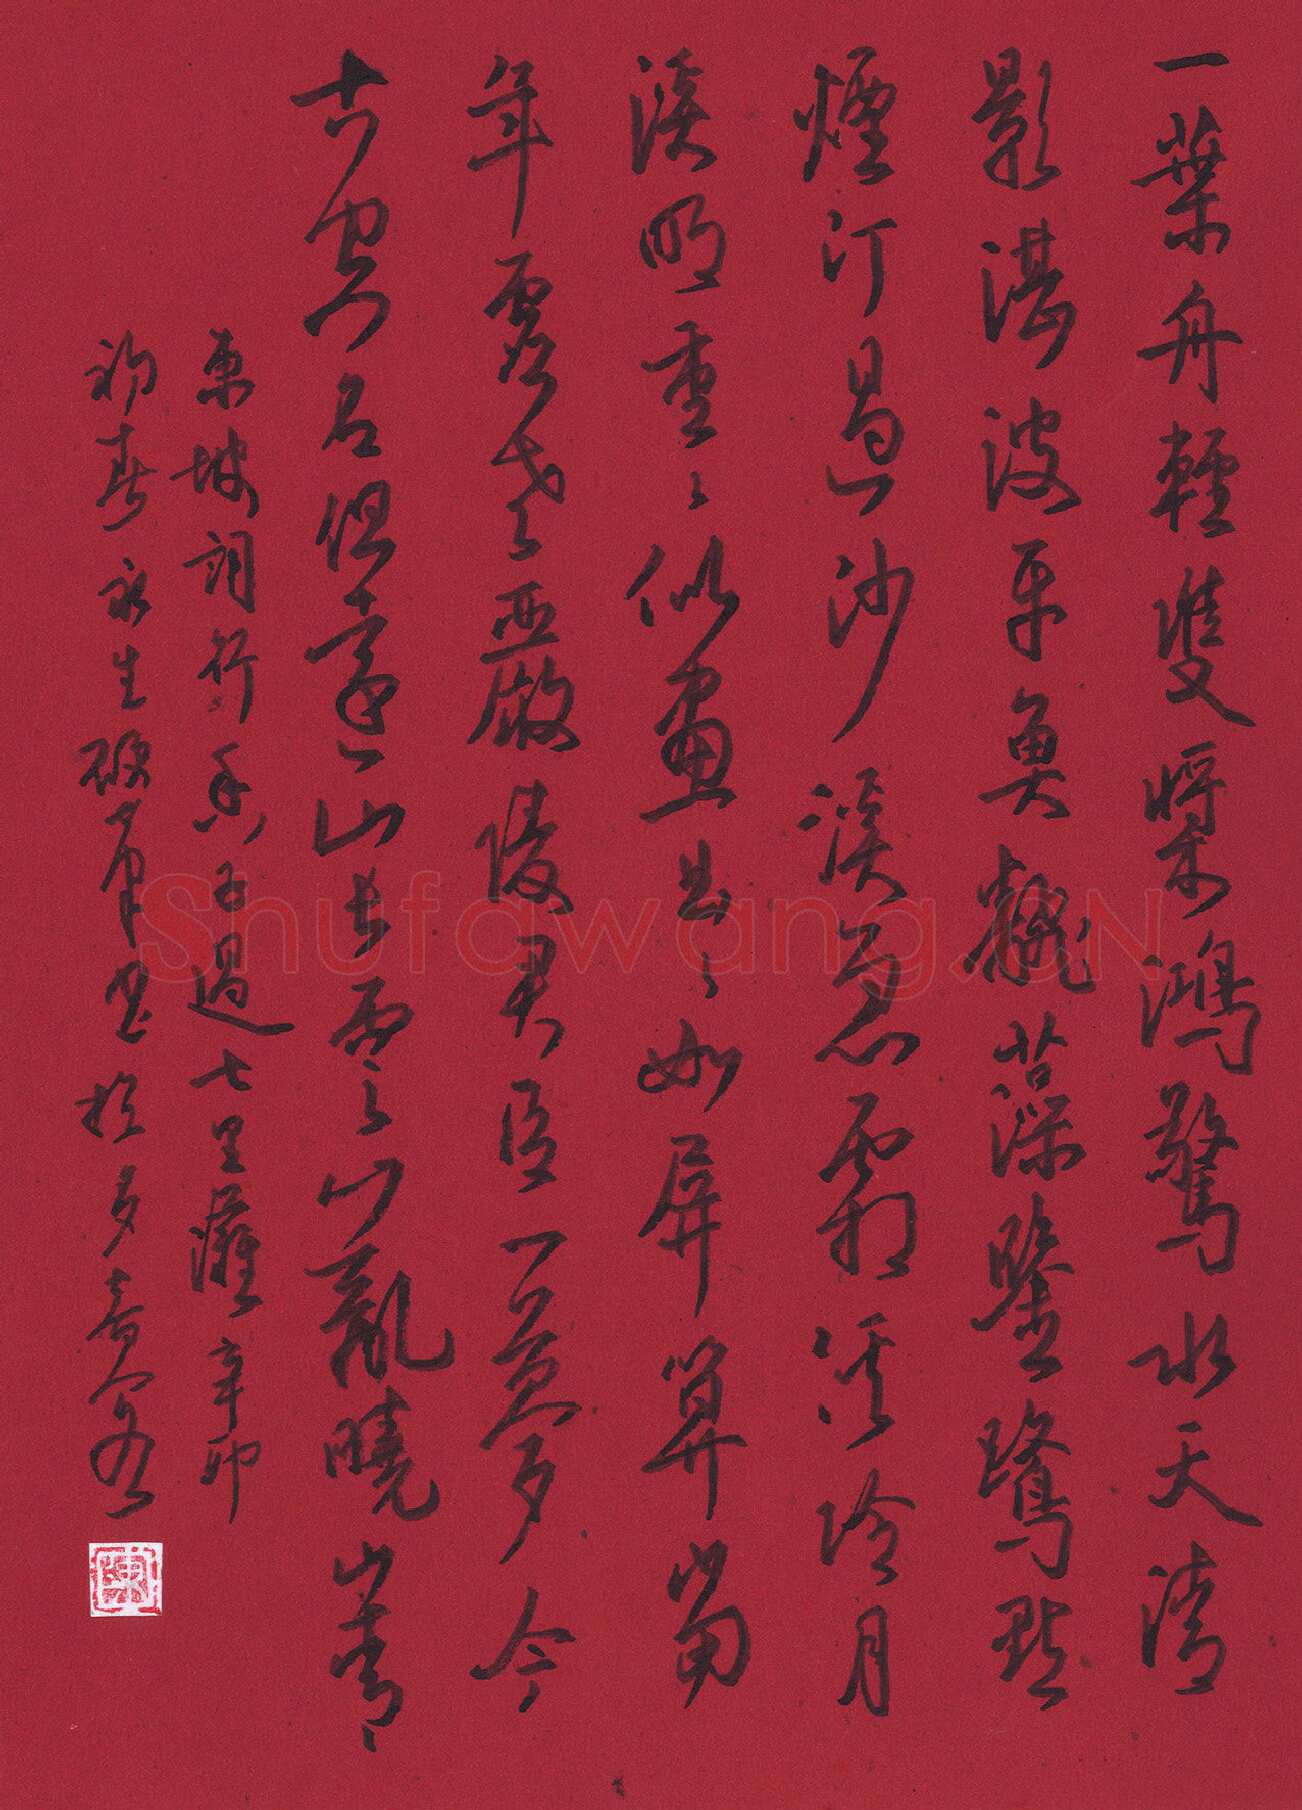 一葉舟輕雙槳鴻驚水天清
影湛波平魚飜藻鑒鷺點
煙汀過沙溪急霜溪冷月
溪明重〻似畫曲〻如屏算當
年虛老嚴陵君臣一夢今
古空名但遠山長雲山亂曉山青
東坡詞行香子過七里灘辛卯
初春永生硬筆書於多喜
陳
Shufawang.CN